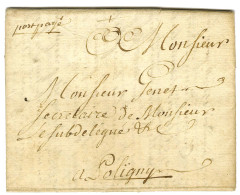 port payé
Monsieur
Monsieur Genet
Secretaire de Monsieur
le subdelegué &
a Poligny